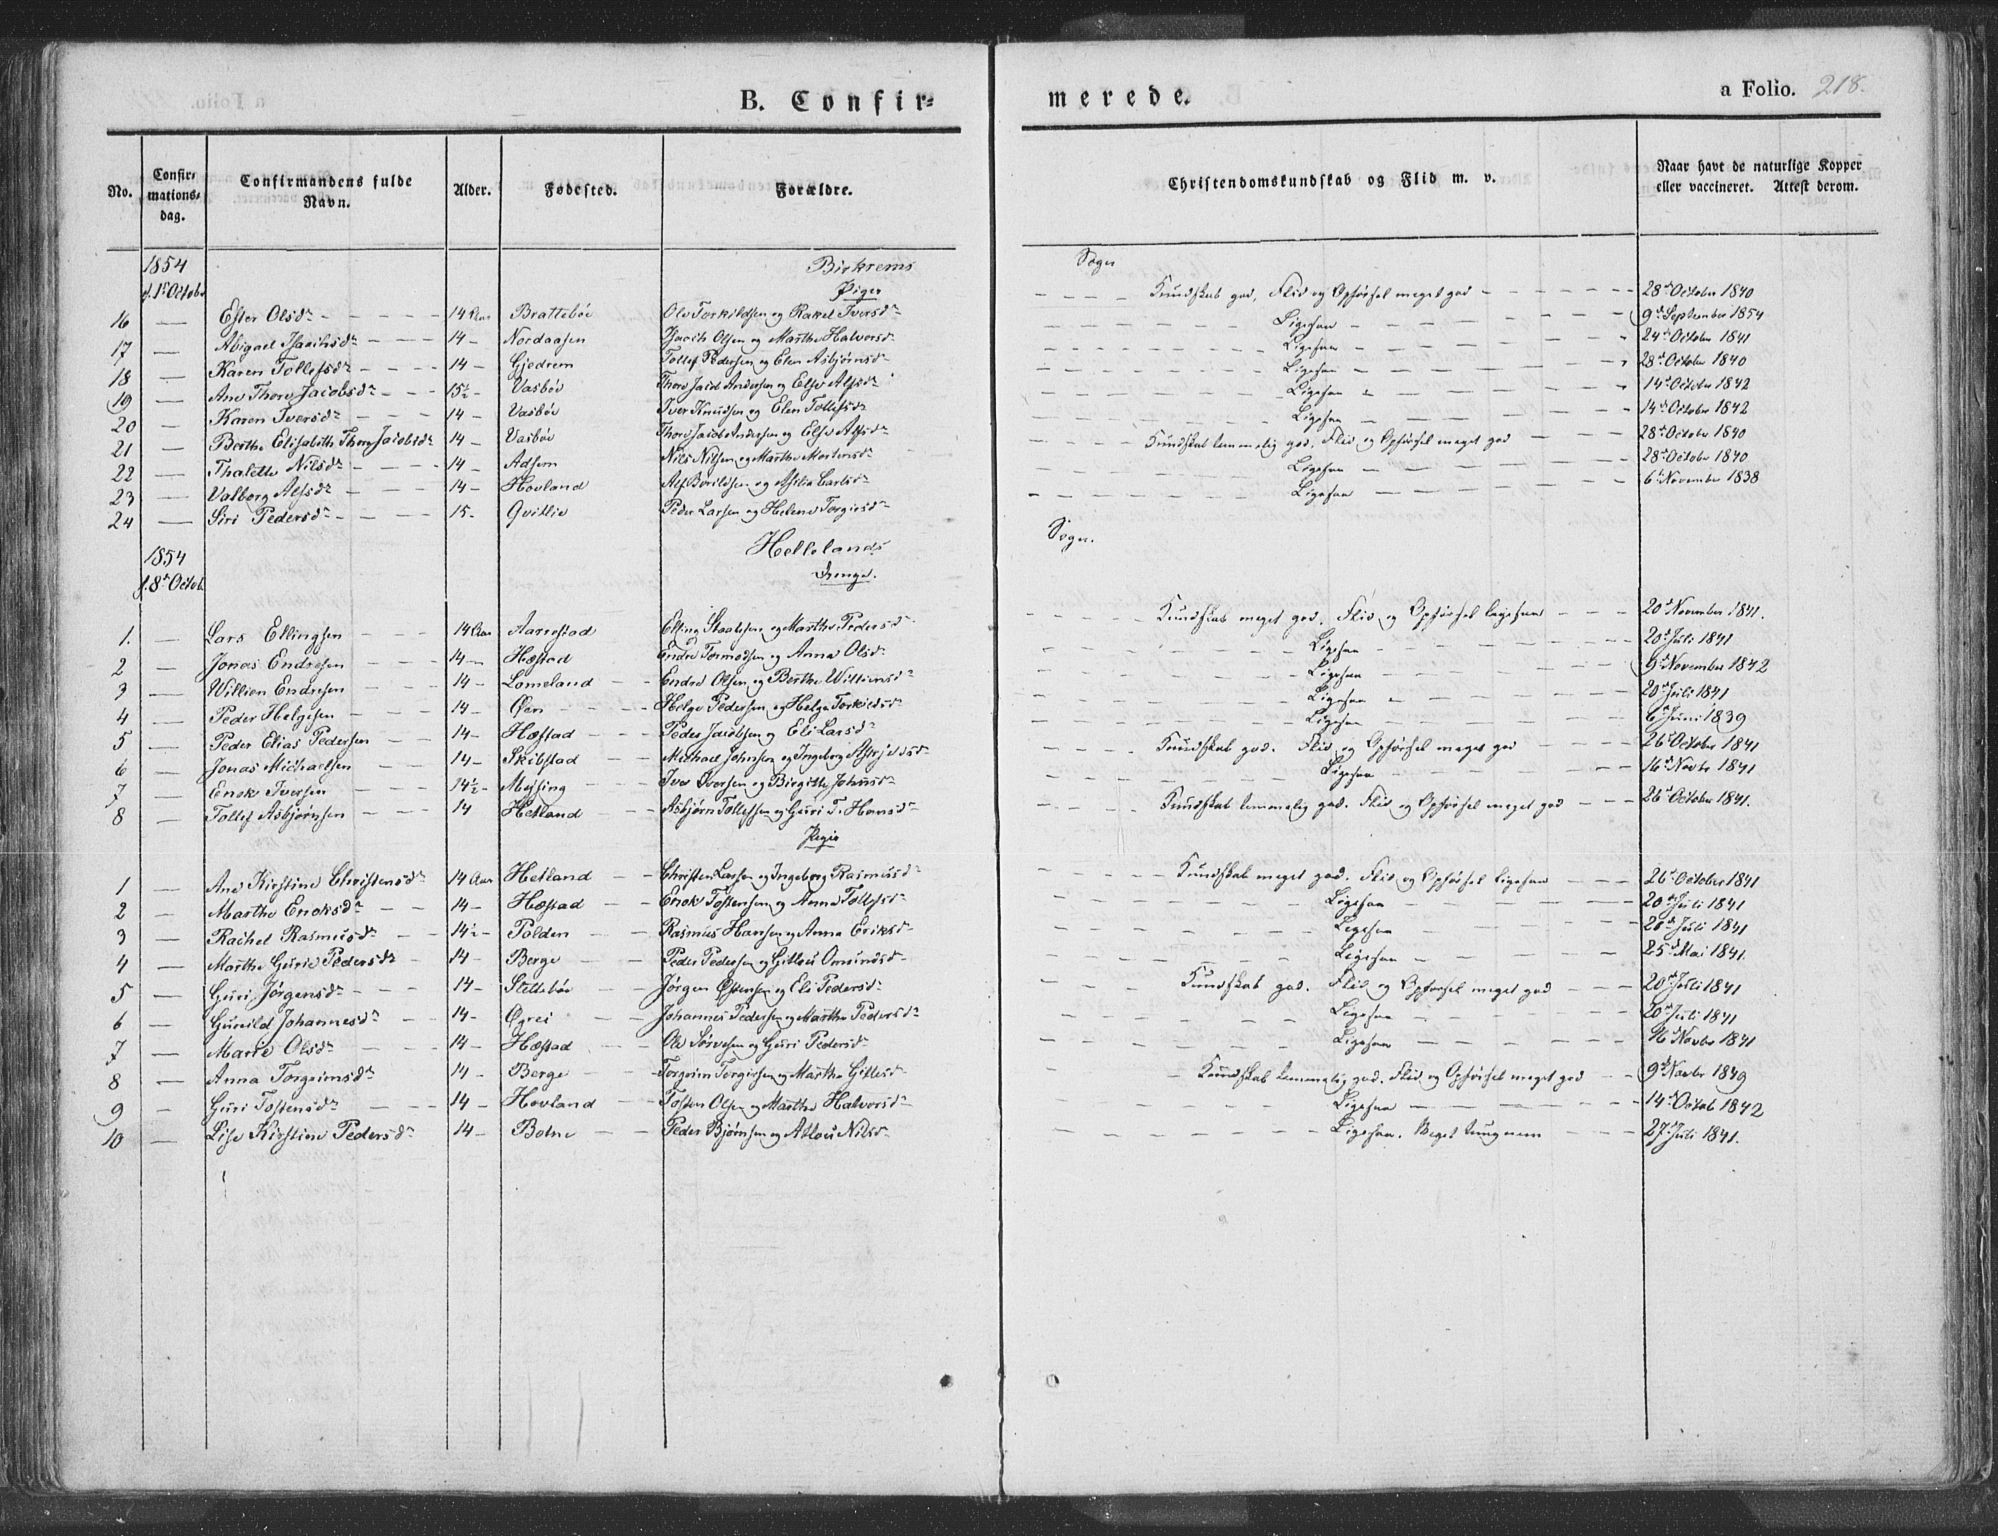 B. Confir-
merede.
a Folio. 218.
No. Confirmations-dag. Confirmandens fulde Navn. Alder. Fødested. Forældre. Christendomskundskab og Flid m. v. Naar havt de naturlige Kopper eller vaccineret. Attest derom.
1854 Birkrems Sogn
d. 1ste Octobr Piger
16 — Ester Olsdr 14 Aar Brattebøe Ole Torkildsen og Rakel Iversdr Kundskab god, Flid og Opførsel meget god 28de October 1840
17 — Abigael Isachsdr 14 Nordaasen Isach Olsen og Marthe Halvorsdr Ligesaa 9de September 1854
18 — Karen Tollefsdr 14 Gjedrem Tollef Pedersen og Elen Asbjørnsdr Ligesaa 24de October 1841
19 — Ane Thore Jacobsdr 15½ Vasbøe Thore Jacob Andersen og Else Alfsdr Ligesaa 28de October 1840
20 — Karen Iversdr 14 Vasbøe Iver Knudsen og Elen Tollefsdr Ligesaa 14de October 1842
21 — Berthe Elisabeth Thore Jacobsdr 14 Vasbøe Thore Jacob Andersen og Else Alfsdr Ligesaa 14de October 1842
22 — Thalette Nilsdr 14 Adsem Nils Nilsen og Marthe Mortensdr Kundskab temmelig god. Flid og Opførsel meget god 28de October 1840
23 — Valborg Alfsdr 14 Hovland Alf Borildsen og Asilia Carlsdr Ligesaa 28de October 1840
24 — Siri Pedersdr 15 Qvitlie Peder Larsen og Helene Torgersdr Ligesaa 6te November 1838
1854 Hellelands Sogn.
d. 8de Octob. Drenge.
1. — Lars Ellingsen 14 Aar Aarrestad Elling Skaalesen og Marthe Pedersdr Kundskab meget god. Flid og Opførsel ligesaa 20de November 1841.
2 — Jonas Endresen 14 Hæstad Endre Tormodsen og Anna Olsdr Ligesaa 20de Juli 1841
3 — Willien Endresen 14 Lomeland Endre Olsen og Berthe Williensdr Ligesaa 9de November 1842
4 — Peder Helgesen 14 Øen Helge Pedersen og Helga Torkildsdr Ligesaa 20de Juli 1841
5 — Peder Elias Pedersen 14 Hæstad Peder Jacobsen og Eli Larsdr Ligesaa 6te Juni 1839
6 — Jonas Michaelsen 14 Skibstad Michael Johnsen og Ingeborg Asgjerdsdr Kundskab god. Flid og Opførsel meget god 26de October 1841
7 — Enok Iversen 14½ Myssing Iver Iversen og Birgithe Johnsdr Ligesaa 16de Novbr 1841
8 Tollef Asbjørnsen 14 Hetland Asbjørn Tollefsen og Guri T. Hansdr Kundskab temmelig god. Flid og Opførsel meget god 26de October 1841.
Piger
1 — Ane Kirstine Christensdr 14 Aar Hetland Christen Larsen og Ingeborg Rasmusdr Kundskab meget god. Flid og Opførsel ligesaa 26de October 1841
2 — Marthe Enoksdr 14 Hæstad Enok Tostensen og Anna Tollefsdr Ligesaa 20de Juli 1841
3 — Rachel Rasmusdr 14½ Polden Rasmus Hansen og Anna Eriksdr Ligesaa 20de Juli 1841
4 — Marthe Gurie Pedersdr 14 Berge Peder Pedersen og Gitlou Omundsdr Ligesaa 25de Mai 1841.
5 — Guri Jørgensdr 14 Stellebøe Jørgen Østensen og Eli Pedersdr Kundskab god. Flid og Opførsel meget god 20de Juli 1841
6 — Gunild Johannesdr 14 Øgrei Johannes Pedersen og Marthe Pedersdr Ligesaa 20de Juli 1841
7 — Marie Olsdr 14 Hæstad Ole Sørvesen og Guri Pedersdr Ligesaa 16de Novbr 1841
8 — Anna Torgeimsdr 14 Berge Torgeim Torgersen og Marthe Gitlesdr Kundskab temmelig god. Flid og Opførsel meget god 9de Novbr 1849
9 — Guri Tostensdr 14 Hovland Tosten Olsen og Marthe Halvorsdr Ligesaa 14de Octob 1842
10 — Lise Kirstine Pedersdr 14 Botne Peder Bjørnsen og Atlou Nilsdr Ligesaa. Meget tungnem 27de Juli 1841.